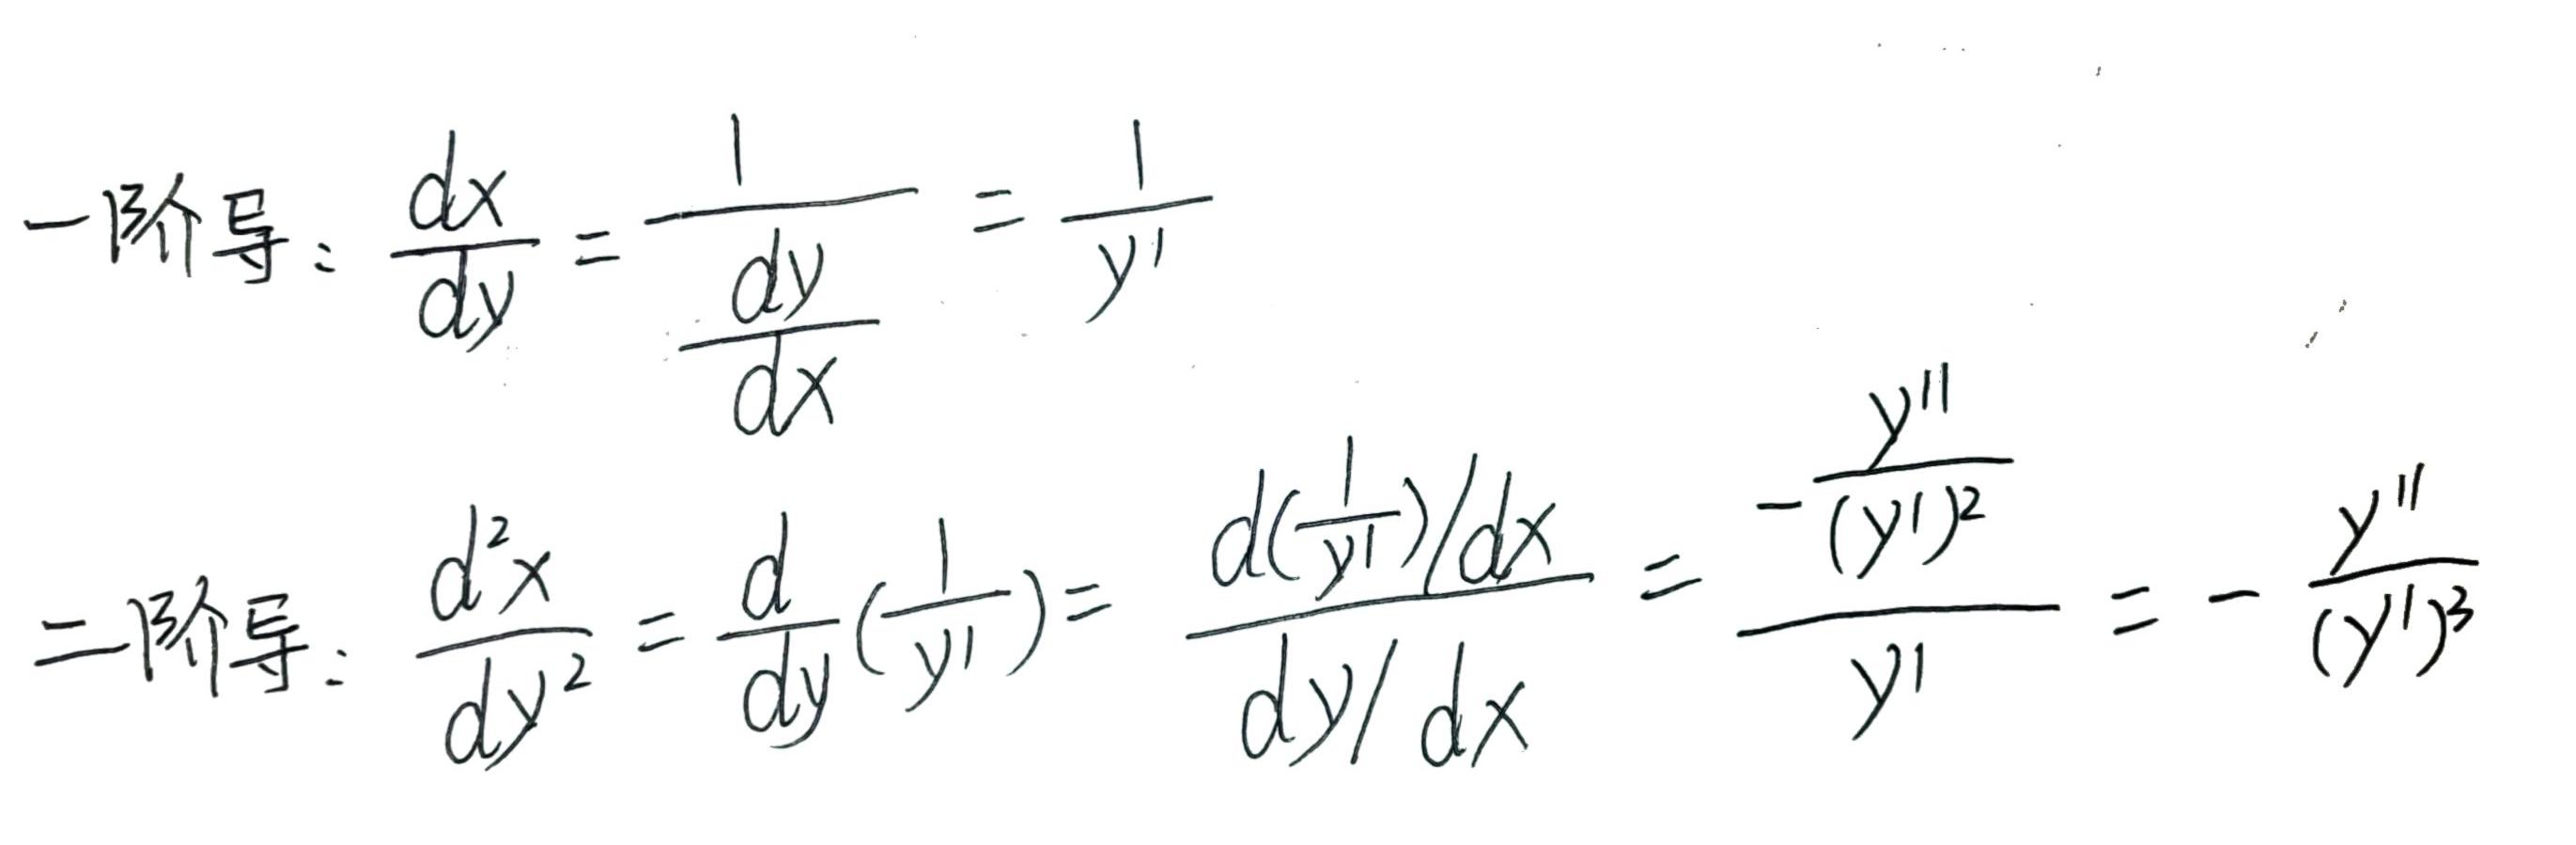 一阶导: \frac{dx}{dy} = \frac{1}{\frac{dy}{dx}} = \frac{1}{y'}
二阶导: \frac{d^2x}{dy^2} = \frac{d}{dy}(\frac{1}{y'}) = \frac{d(\frac{1}{y'})/dx}{dy/dx} = \frac{-\frac{y''}{(y')^2}}{y'} = -\frac{y''}{(y')^3}